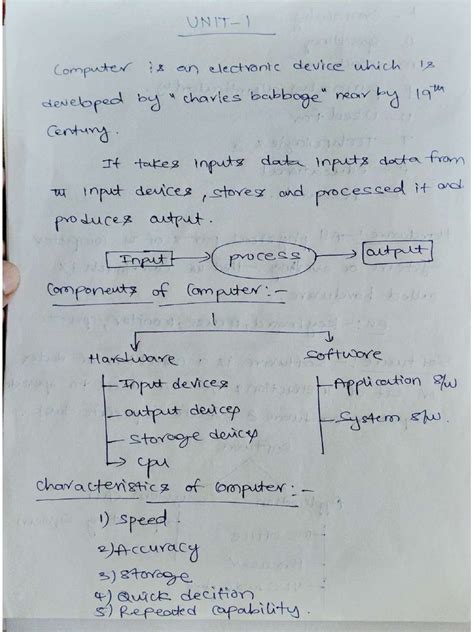 UNIT-1
Computer is an electronic device which is
developed by "charles babbage" near by 19th
Century.
It takes inputs data inputs data from
input devices, stores and processed it and
produces output.
Input process output
Components of Computer:-
Hardware Software
Input devices Application s/w
output devices System s/w.
Storage devices
CPU
Characteristics of Computer:-
1) Speed
2) Accuracy
3) Storage
4) Quick decition
5) Repeated capability.